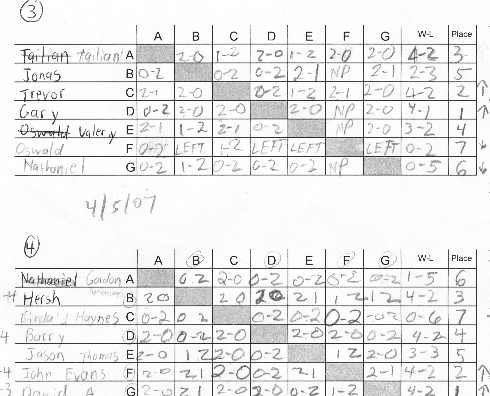 ③
A B C D E F G W-L Place
Tailian Tailian A 2-0 1-2 2-0 1-2 2-0 2-0 4-2 3
Jonas B 0-2 0-2 0-2 2-1 NP 2-1 2-3 5
Trevor C 2-1 2-0 0-2 1-2 2-1 2-0 4-2 2 ↑
Gary D 0-2 2-0 2-0 2-0 NP 2-0 4-1 1 ↑
Oswald Valery E 2-1 1-2 2-1 0-2 NP 2-0 3-2 4
Oswald F 0-2 LEFT 1-2 LEFT LEFT LEFT 0-2 7 ↓
Nathaniel G 0-2 1-2 0-2 0-2 0-2 NP 0-5 6 ↓
4/5/07
④
A B C D E F G W-L Place
Nathaniel Gordon A 0 2 2-0 0-2 0-2 0-2 0-2 1-5 6
Hersh B 2 0 2 0 2 0 2 1 1 2 1 2 4-2 3
Haynes C 0-2 0 2 0-2 0-2 0-2 0-2 0-6 7
Barry D 2-0 0-2 2-0 2-0 2-0 0-2 4-2 4
Jason Thomas E 2-0 1 2 2-0 0-2 1 2 2-0 3-3 5
John Evans F 2-0 2 1 2-0 0-2 2 1 2-1 4-2 2 ↑
David A G 2-0 2 1 2-0 2-0 0-2 1-2 4-2 1 ↑